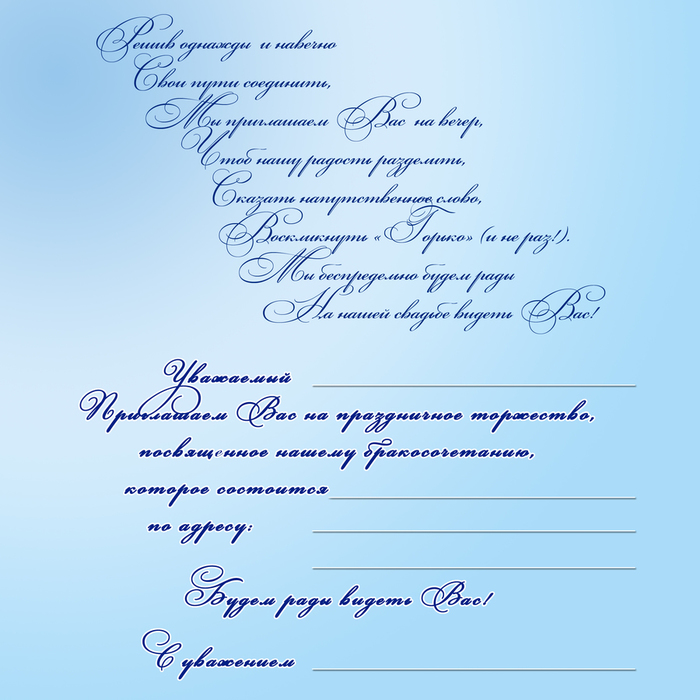 Решив однажды и навечно
Свои пути соединить,
Мы приглашаем Вас на вечер,
Чтоб нашу радость разделить,
Сказать напутственное слово,
Воскликнуть «Горько» (и не раз!).
Мы беспредельно будем рады
На нашей свадьбе видеть Вас!
Уважаемый
Приглашаем Вас на праздничное торжество,
посвященное нашему бракосочетанию,
которое состоится
по адресу:
Будем рады видеть Вас!
С уважением